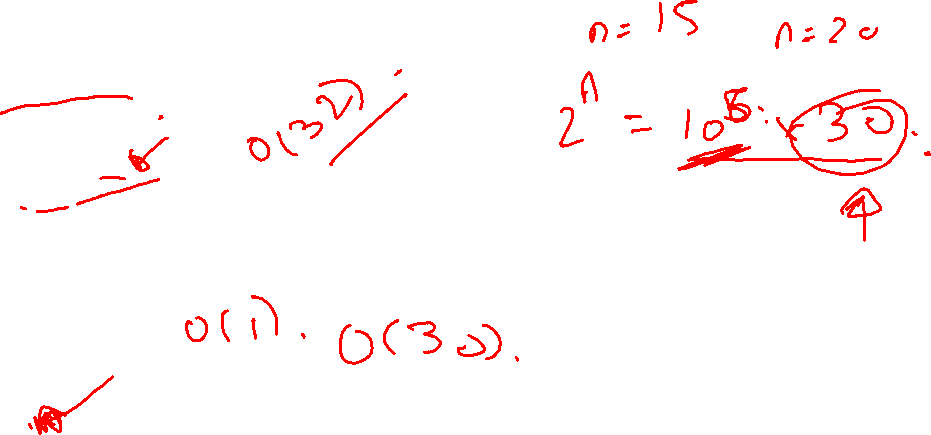 n=15 n=20
O(32) 2^n = 10^5 × 30
O(1). O(30).